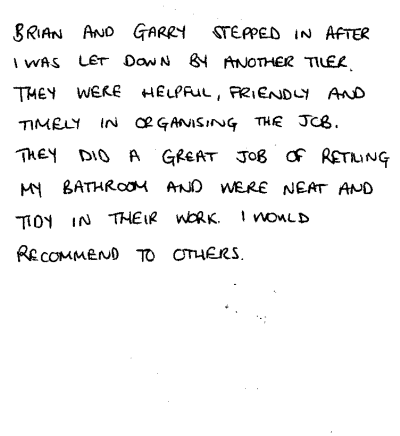 BRIAN AND GARRY STEPPED IN AFTER
I WAS LET DOWN BY ANOTHER TILER.
THEY WERE HELPFUL, FRIENDLY AND
TIMELY IN ORGANISING THE JOB.
THEY DID A GREAT JOB OF RETILING
MY BATHROOM AND WERE NEAT AND
TIDY IN THEIR WORK. I WOULD
RECOMMEND TO OTHERS.